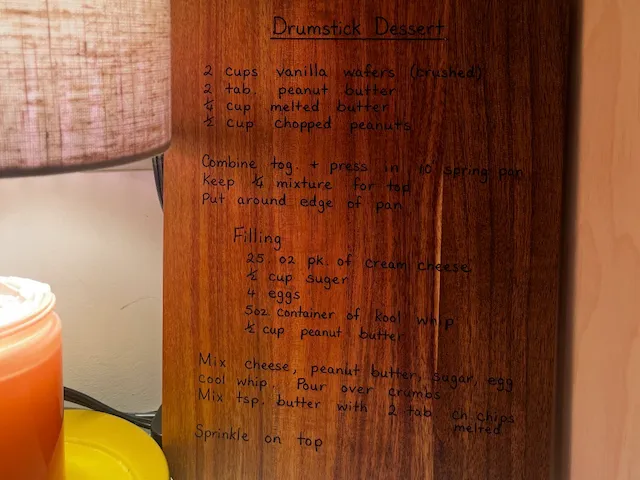 Drumstick Dessert
2 cups vanilla wafers (crushed)
2 tab. peanut butter
cup melted butter
½ cup chopped peanuts
Combine tog. + press in 10 spring pan
Keep ¼ mixture for top
Put around edge of pan
Filling
25. oz pk. of cream cheese
½ cup suger
4 eggs
5oz container of kool whip
½ cup peanut butter
Mix cheese, peanut butter, sugar, egg
cool whip. Pour over crumbs
Mix tsp. butter with 2 tab ch.chips
melted
Sprinkle on top